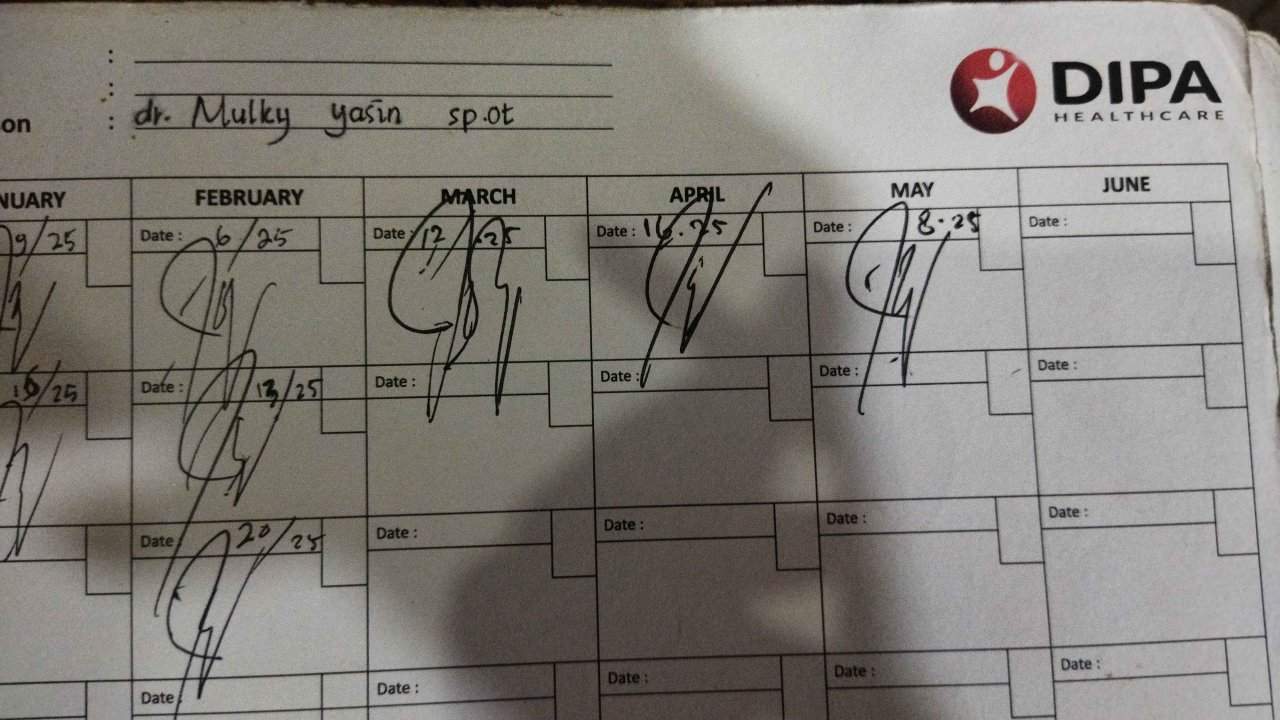 :
:
on : dr. Mulky yasin sp.ot
DIPA
HEALTHCARE
NUARY FEBRUARY MARCH APRIL MAY JUNE
9/25 Date : 6/25 Date : 12/25 Date : 16.25 Date : 8.25 Date :
15/25 Date : 13/25 Date : Date : Date : Date :
Date 20/25 Date : Date : Date : Date :
Date Date : Date : Date : Date :